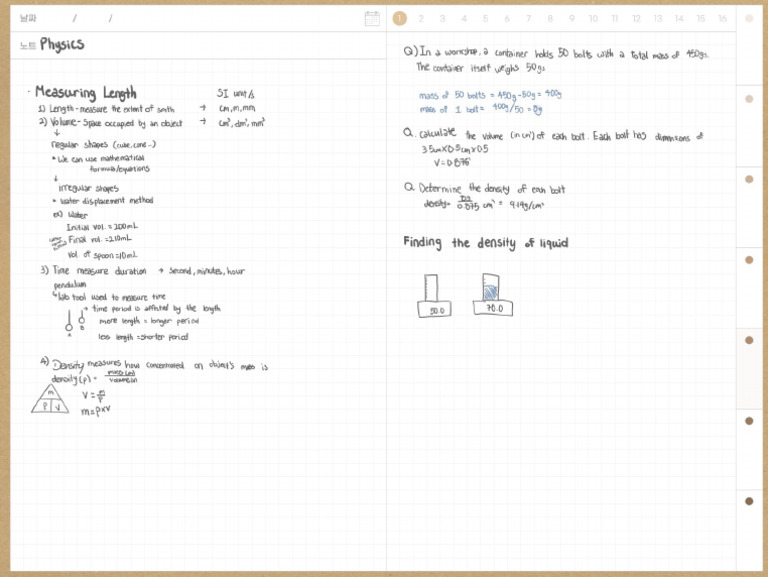 날짜 / /
노트 Physics
· Measuring Length SI units
1) Length - measure the extent of smth → cm, m, mm
2) Volume - Space occupied by an object → cm³, dm³, mm³
↓
regular shapes (cube, cone..)
* We can use mathematical
formula/equations
↓
irregular shapes
* water displacement method
ex) Water
Initial vol. = 200mL
Final vol. = 210mL
Vol of spoon = 10mL
3) Time measure duration → second, minutes, hour
pendulum
↳ lab tool used to measure time
→ time period is affected by the length
more length = longer period
A B
less length = shorter period
4) Density measures how concentrated an object's mass is
density(ρ) = mass(m)/volume(v)
m
ρ V
V = m/ρ
m = ρ×v
1 2 3 4 5 6 7 8 9 10 11 12 13 14 15 16
Q) In a workshop, a container holds 50 bolts with a total mass of 450gs.
The container itself weighs 50gs
mass of 50 bolts = 450g - 50g = 400g
mass of 1 bolt = 400g/50 = 8g
Q. Calculate the volume (in cm³) of each bolt. Each bolt has dimensions of
3.5cm×0.5cm×0.5
V = 0.875
Q. Determine the density of each bolt
density = /0.875 cm³ = 9.14g/cm³
Finding the density of liquid
50.0 70.0